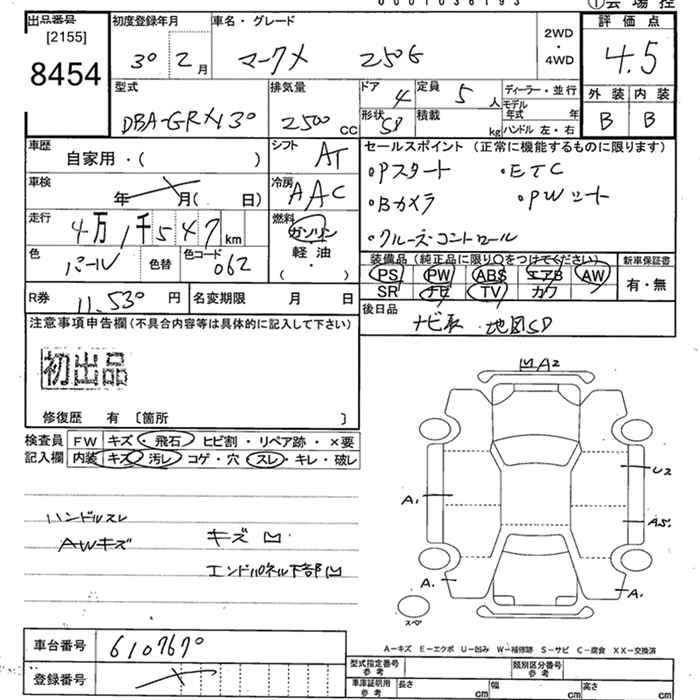 ① 会場控
出品番号 初度登録年月 車名・グレード 2WD 評価点
[2155] ・
8454 30 2月 マークX 250G 4WD 4.5
型式 排気量 ドア 4 定員 5人 ディーラー・並行 外装 内装
DBA-GRX130 2500 CC 形状 SD 積載 kg モデル年式 年 B B
ハンドル 左・右
車歴 自家用・( ) シフト AT セールスポイント (正常に機能するものに限ります)
車検 年 月( 日) 冷房 AAC ・Pスタート ・ETC
・Bカメラ ・PWシート
走行 4万1千547km 燃料 ガソリン ・クルーズ・コントロール
色 パール 色替 色コード 062 軽油 装備品 (純正品に限り〇をつけてください) 新車保証書
( ・ ) PS PW ABS エアB AW 有・無
R券 11,530円 名変期限 月 日 SR ナビ TV カワ
注意事項申告欄(不具合内容等は具体的に記入して下さい) 後日品 ナビ取 地図SD
初出品
修復歴 有 〔箇所 〕
検査員 FW キズ・飛石・ヒビ割・リペア跡・×要
記入欄 内装 キズ・汚レ・コゲ・穴・スレ・キレ・破レ
A2
U2
A1
A
A
スペ
ハンドルスレ キズ凹
AWキズ エンドパネル下部凹
車台番号 6107670
登録番号
A-キズ E-エクボ U-凹み W-補修跡 S-サビ C-腐食 XX-交換済
型式指定番号 参考 類別区分番号 参考
車庫証明用 参考 長さ cm 幅 cm 高さ cm